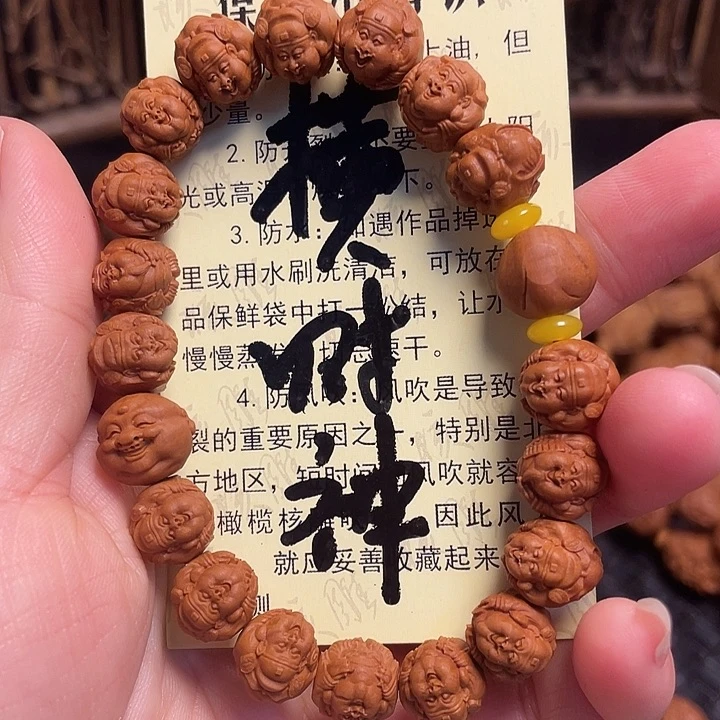 上油，但
少量。
2. 防 要 阳
光或高 下。
3. 防水：如遇作品掉进
里或用水刷洗清洁，可放在
品保鲜袋中打一 结，让水
慢慢蒸 切忌速干。
4. 防 风吹是导致
裂的重要原因之一，特别是北
方地区，短时间 风吹就容
橄榄核 因此风
就应妥善收藏起来
则
横财神